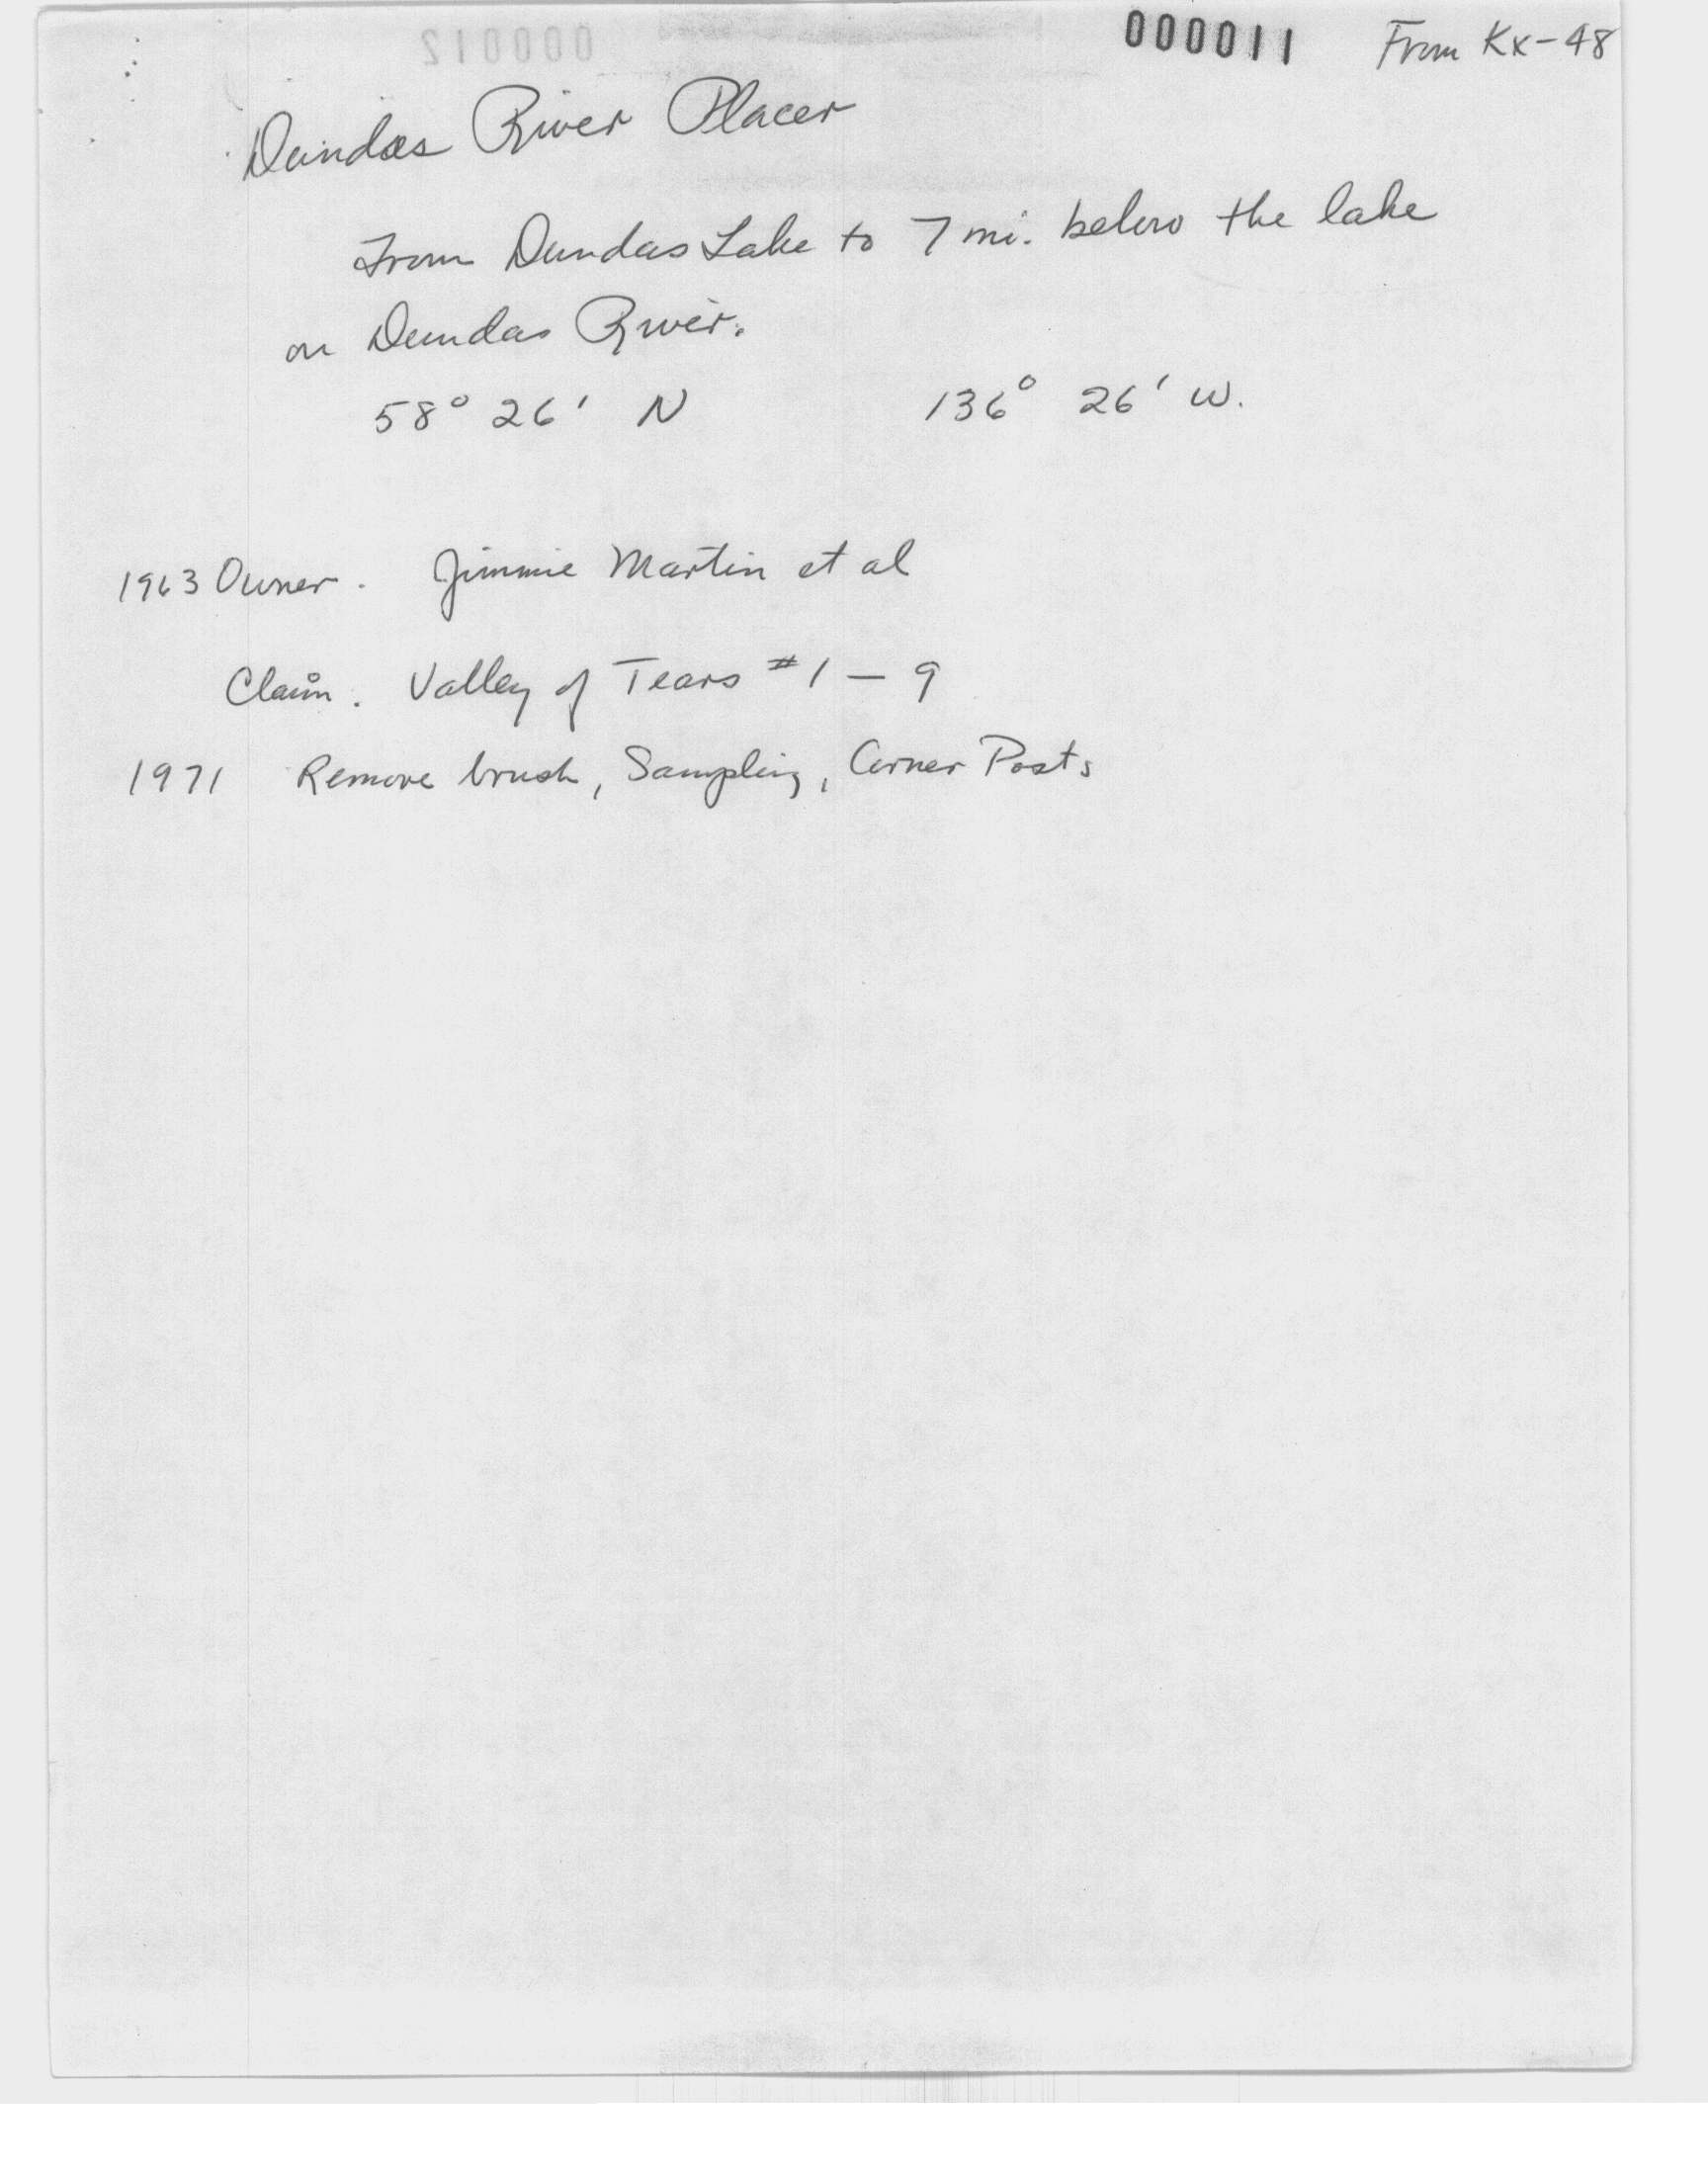 000011 From Kx-48
000012
Dundas River Placer
From Dundas Lake to 7 mi. below the lake
on Dundas River.
58° 26' N 136° 26' W.
1963 Owner. Jimmie Martin et al
Claim. Valley of Tears #1 - 9
1971 Remove brush, Sampling, Corner Posts